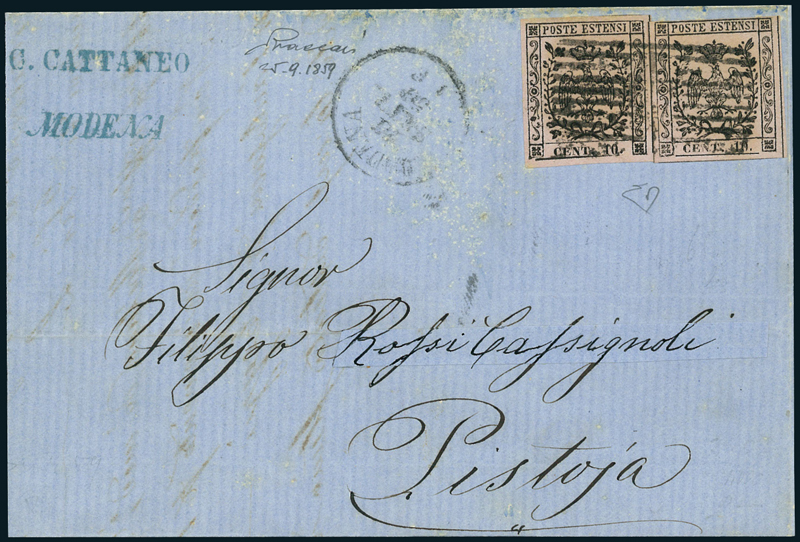 C. CATTANEO
MODENA
25.9.1859
MODENA
POSTE ESTENSI
CENT. 10.
POSTE ESTENSI
CENT. 10.
Signor
Filippo Rossi Cassignoli
Pistoja